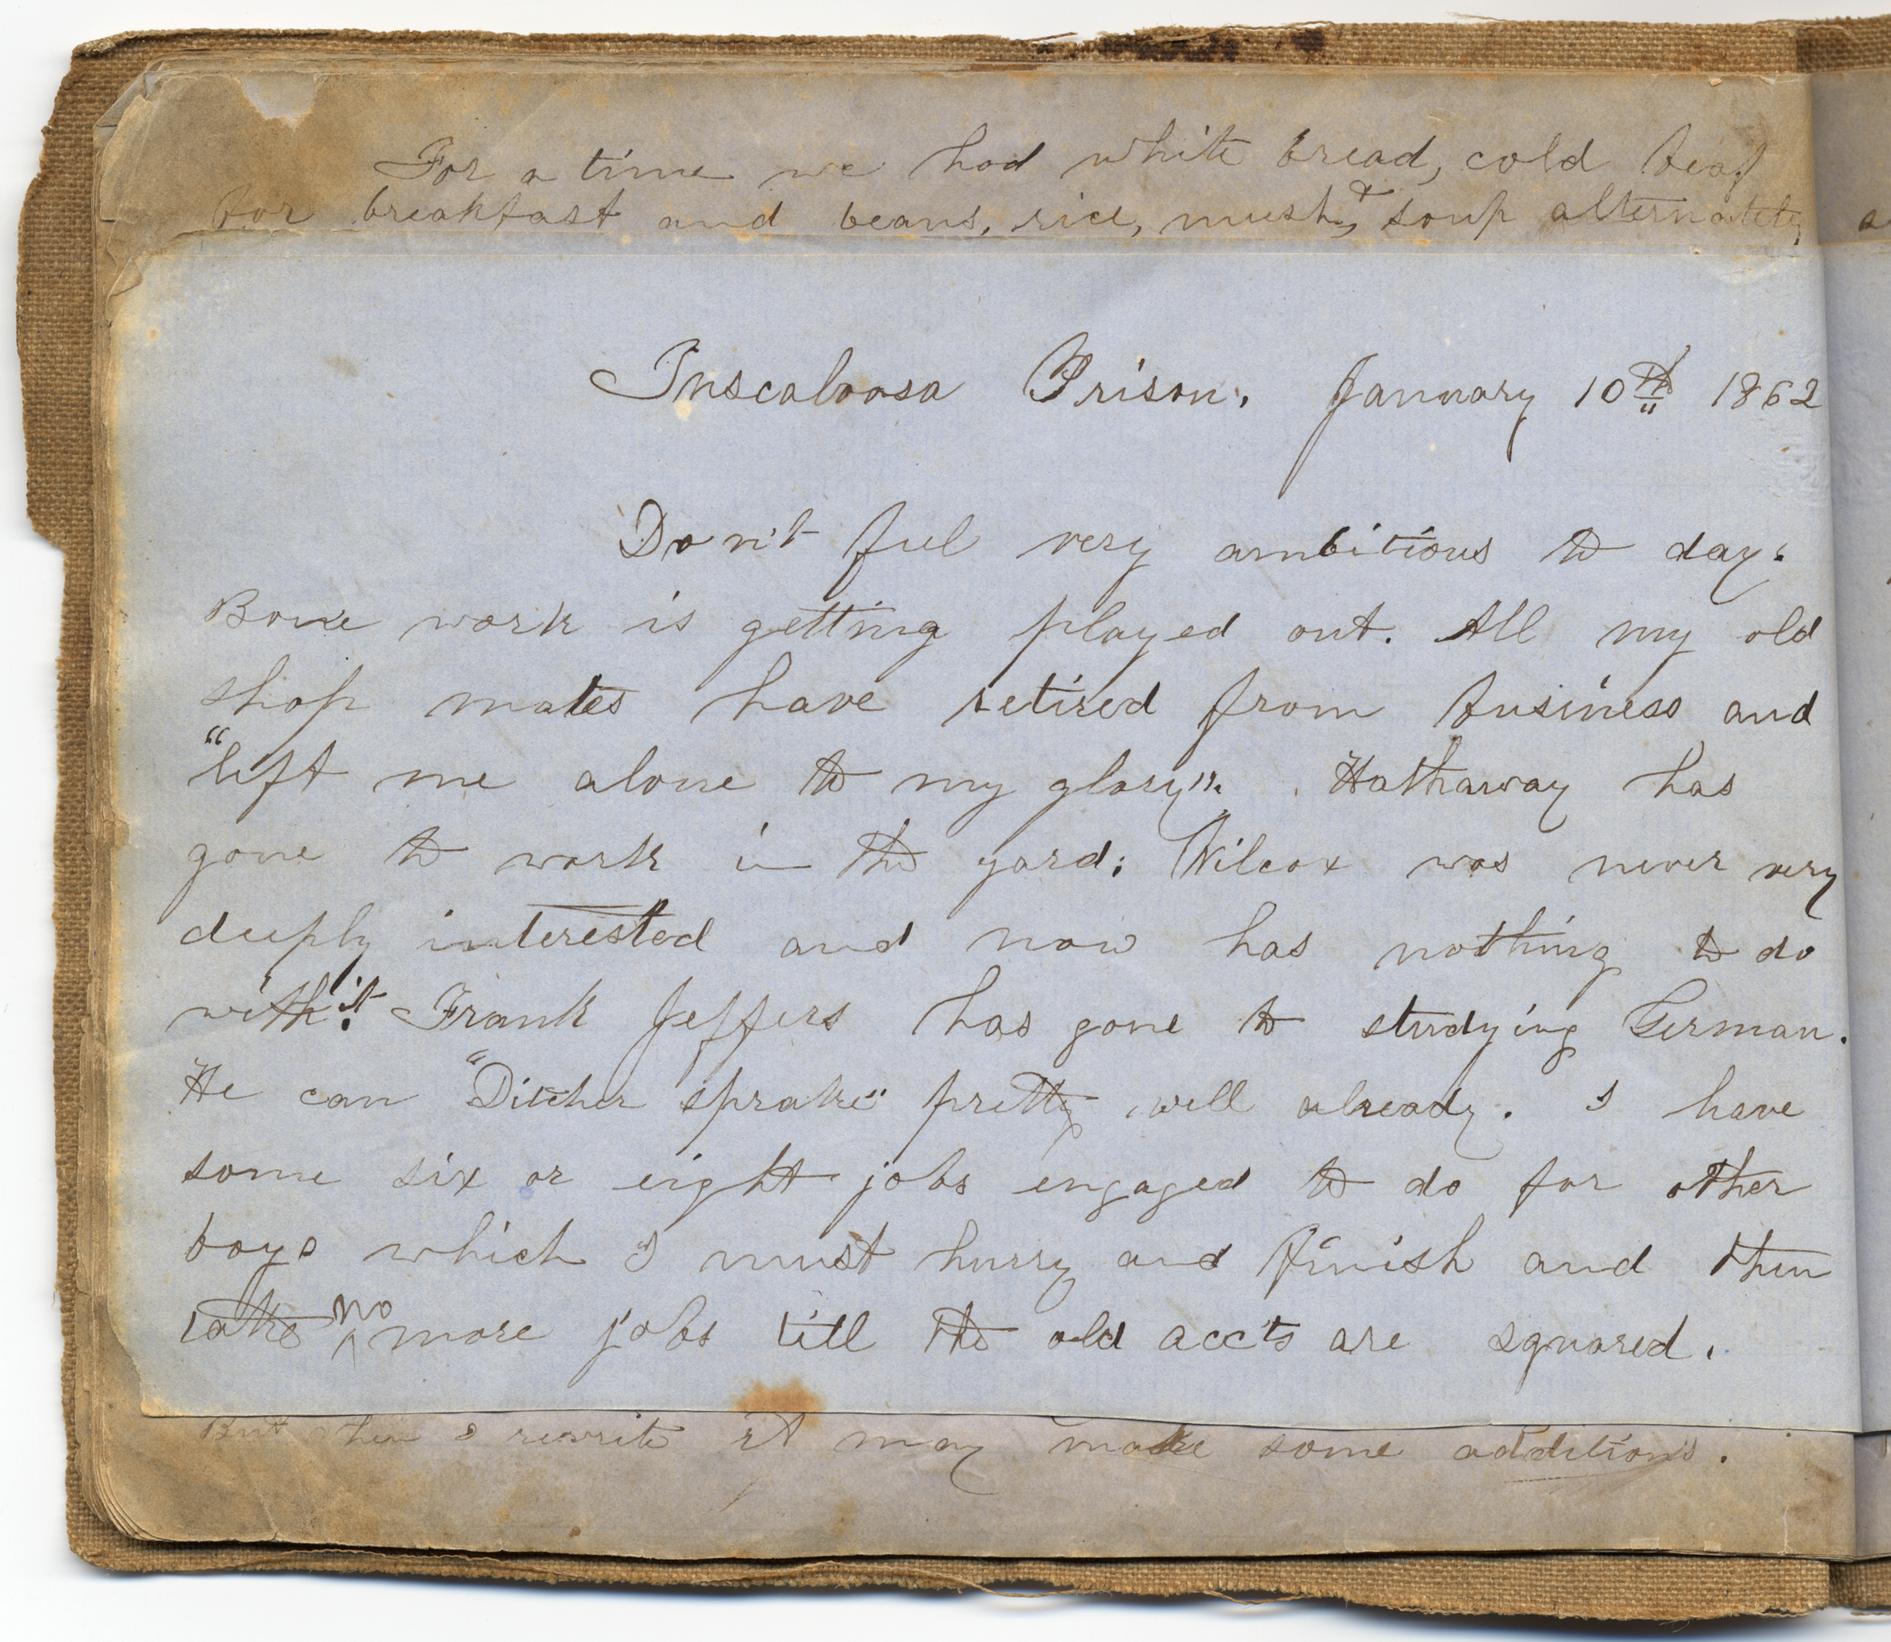 For a time we had white bread, cold beaf
for breakfast and beans, rice, mush, & soup alternately
Tuscaloosa Prison. January 10th 1862
Don't feel very ambitious to day.
Bone work is getting played out. All my old
shop mates have retired from business and
"left me alone to my glory". Hathaway has
gone to work in the yard; Wilcox was never very
deeply interested and now has nothing to do
with it. Frank Jeffers has gone to studying German.
He can "Ditcher sprake" pretty well already. I have
some six or eight jobs engaged to do for other
boys which I must hurry and finish and then
take no more jobs till the old acc'ts are squared.
But when I rewrite it may make some additions.